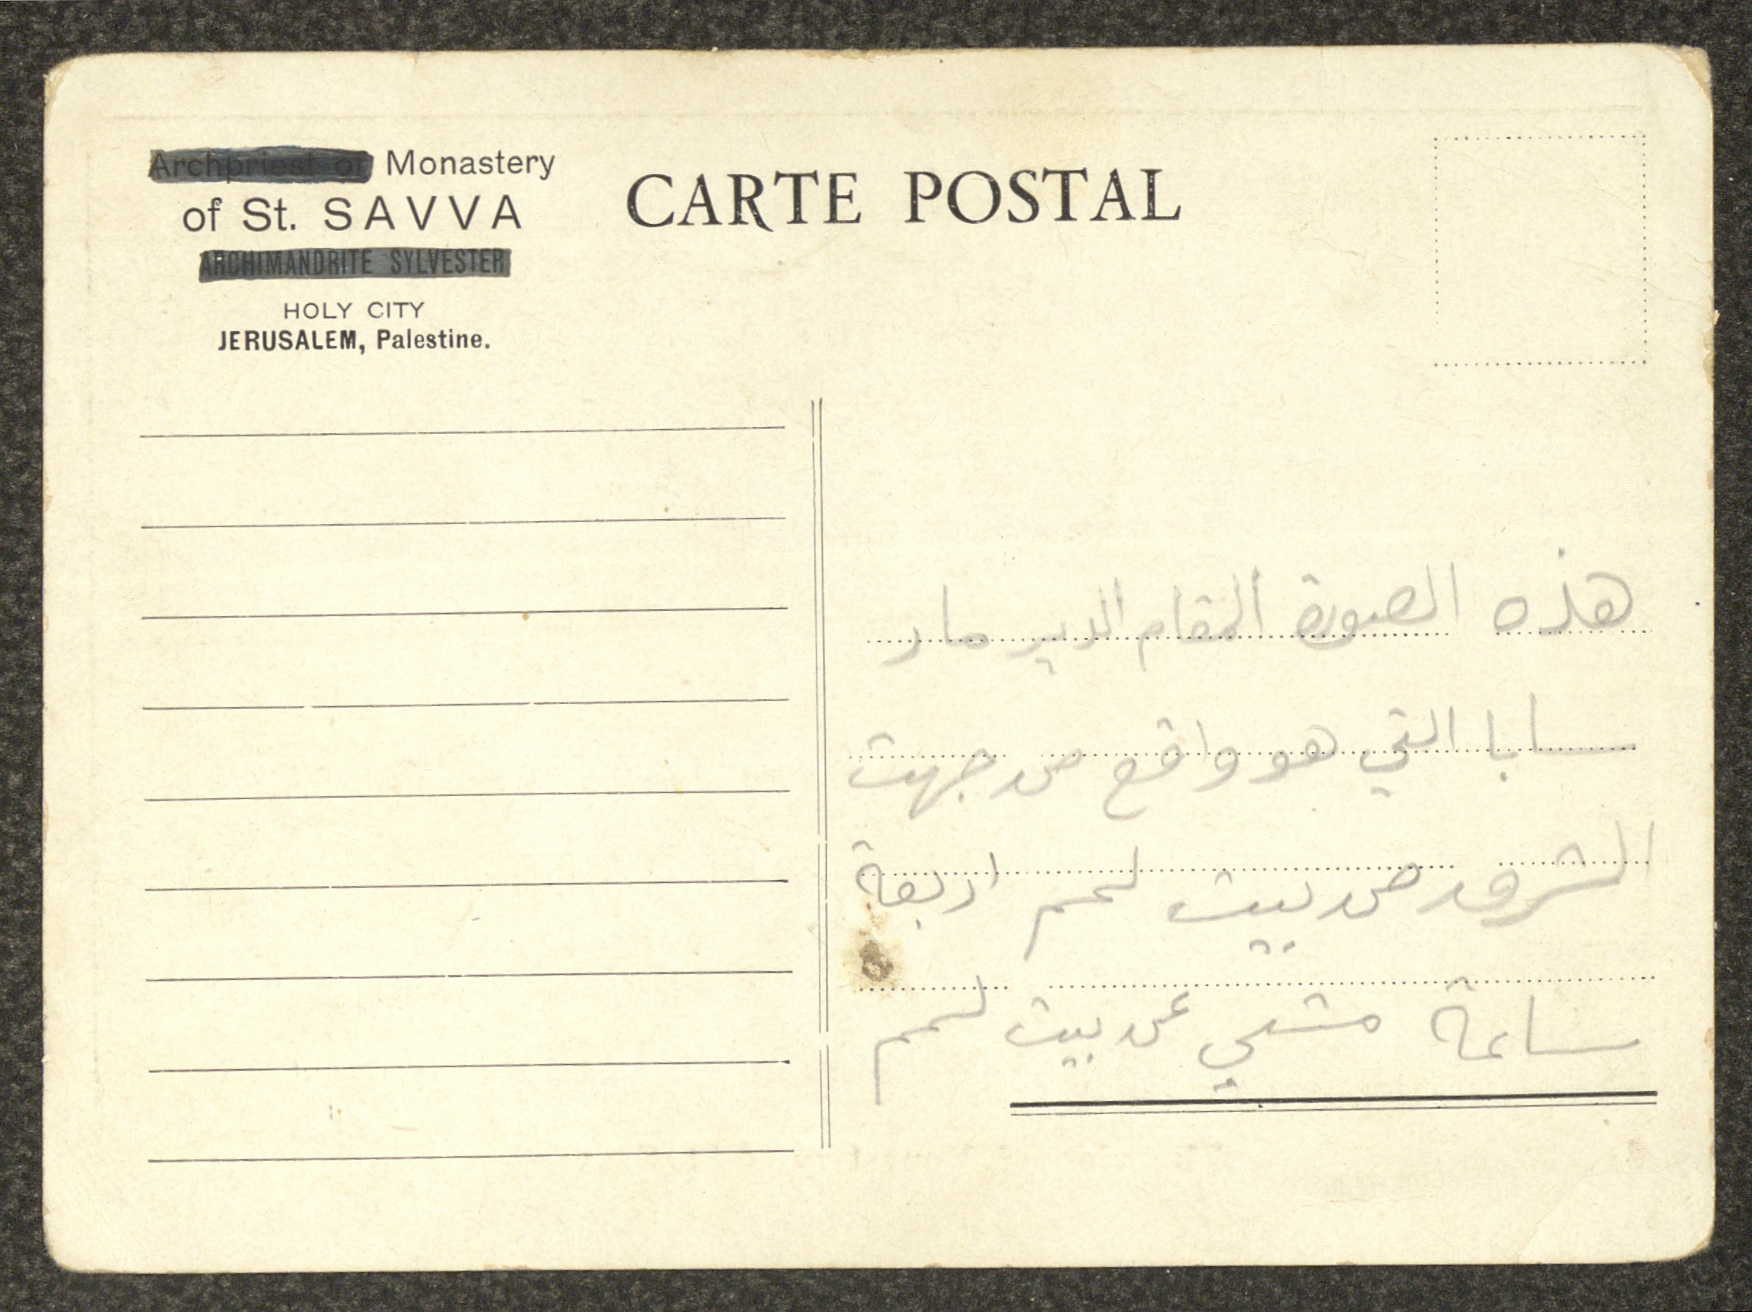 Archpriest of Monastery
of St. SAVVA
ARCHIMANDRITE SYLVESTER
HOLY CITY
JERUSALEM, Palestine.
CARTE POSTAL
هذه الصورة المقام الدير مار
سابا التي هو واقع من جهت
الشرق من بيت لحم اربعة
ساعة مشي عن بيت لحم